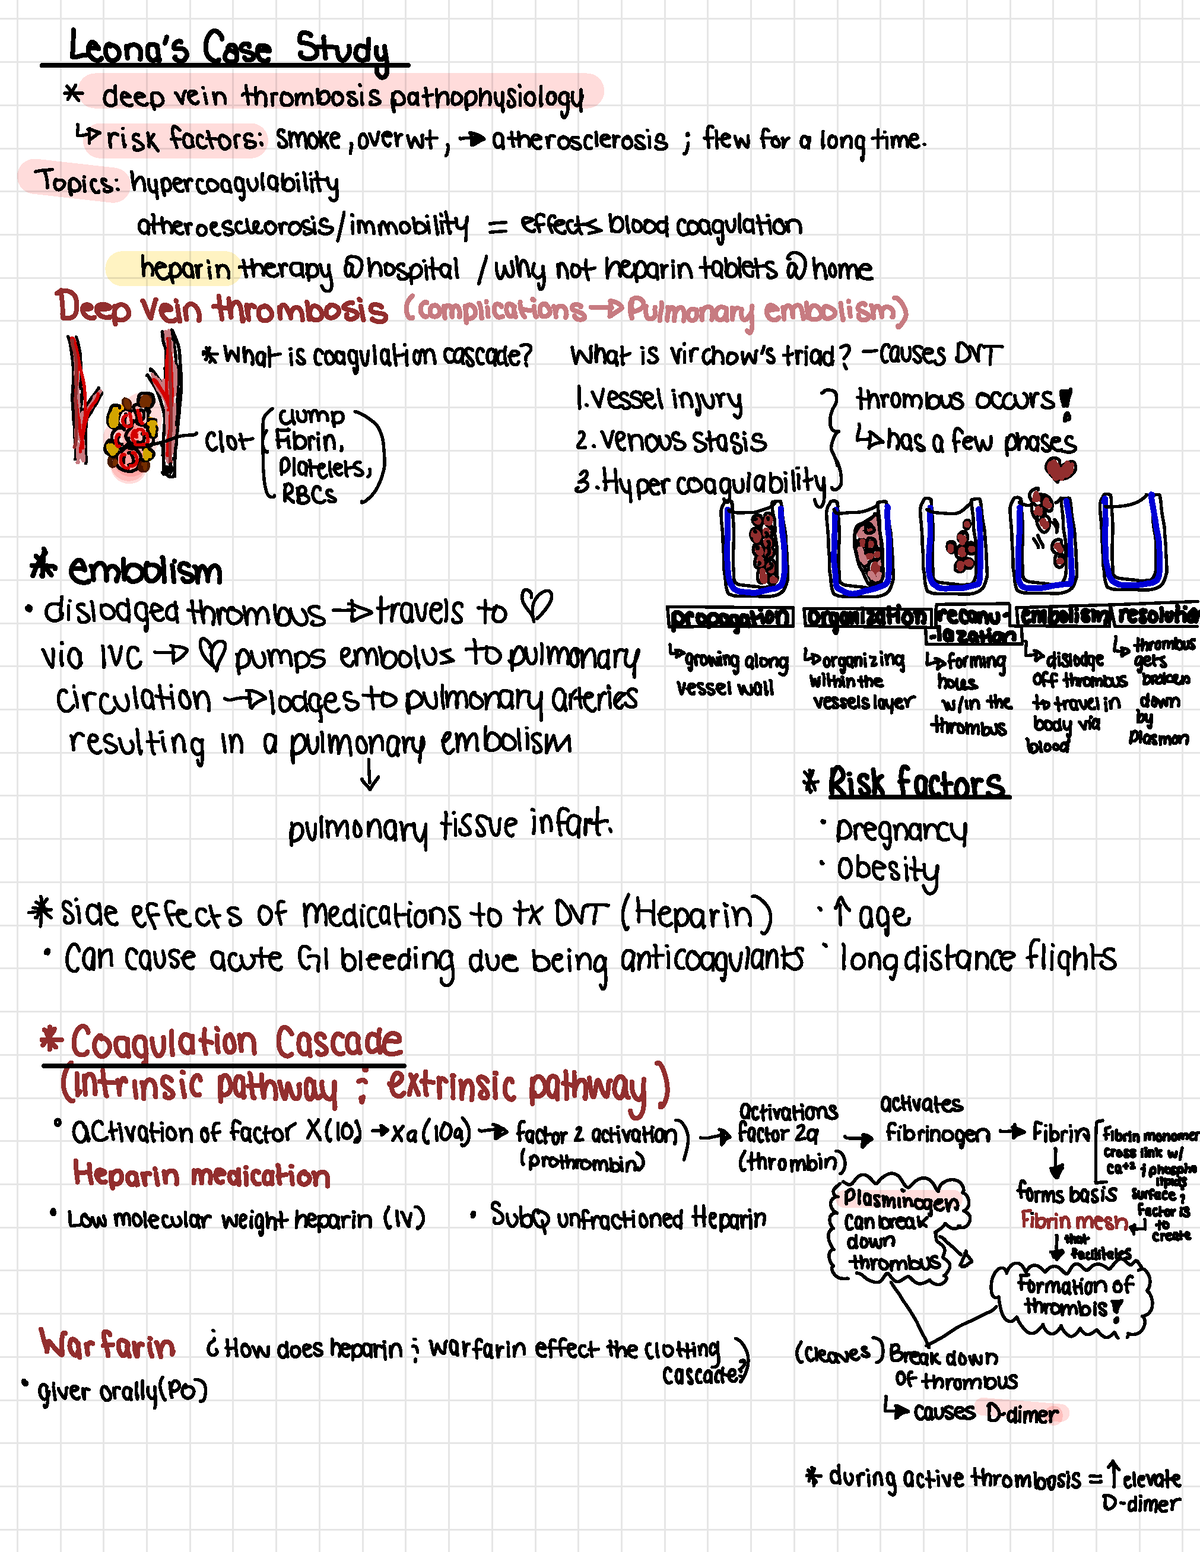 Leona's Case Study
* deep vein thrombosis pathophysiology
↳ risk factors: smoke, overwt, → atherosclerosis ; flew for a long time.
Topics: hypercoagulability
atheroescleorosis/immobility = effects blood coagulation
heparin therapy @hospital / why not heparin tablets @home
Deep Vein thrombosis (complications → Pulmonary embolism)
* What is coagulation cascade?
clot
clump
Fibrin,
Platelets,
RBCs
What is virchow's triad? - causes DVT
1. Vessel injury
2. Venous stasis
3. Hyper coagulability
thrombus occurs!
↳ has a few phases
propagation
↳ growing along
vessel wall
organization
↳ organizing
within the
vessels layer
recanu-
-lazation
↳ forming
holes
w/in the
thrombus
embolism
↳ dislodge
off thrombus
to travel in
body via
blood
resolutio
↳ thrombus
gets
broken
down
by
Plasman
* embolism
• dislodged thrombus → travels to ♡
via IVC → ♡ pumps embolus to pulmonary
circulation → lodges to pulmonary arteries
resulting in a pulmonary embolism
↓
pulmonary tissue infart.
* Risk factors
• pregnancy
• Obesity
• ↑ age
• long distance flights
* Side effects of medications to tx DVT (Heparin)
• Can cause acute GI bleeding due being anticoagulants
* Coagulation Cascade
(intrinsic pathway ; extrinsic pathway)
• activation of factor X(10) → Xa(10a) → factor 2 activation) → 
(prothrombin)
activations
factor 2a →
(thrombin)
activates
fibrinogen → Fibrin
Fibrin monomer
cross link w/
Ca+2 ; phospho
lipids
surface ;
Factor 13
to
create
↓
forms basis
Fibrin mesh
↓ that
facilitates
Formation of
thrombis!
Plasminogen
can break
down
thrombus
(cleaves) Break down
of thrombus
↳ causes D-dimer
Heparin medication
• Low molecular weight heparin (IV)
• SubQ unfractioned Heparin
Warfarin ¿How does heparin ; warfarin effect the clotting
cascade?
• giver orally(PO)
* during active thrombosis = ↑ elevate
D-dimer